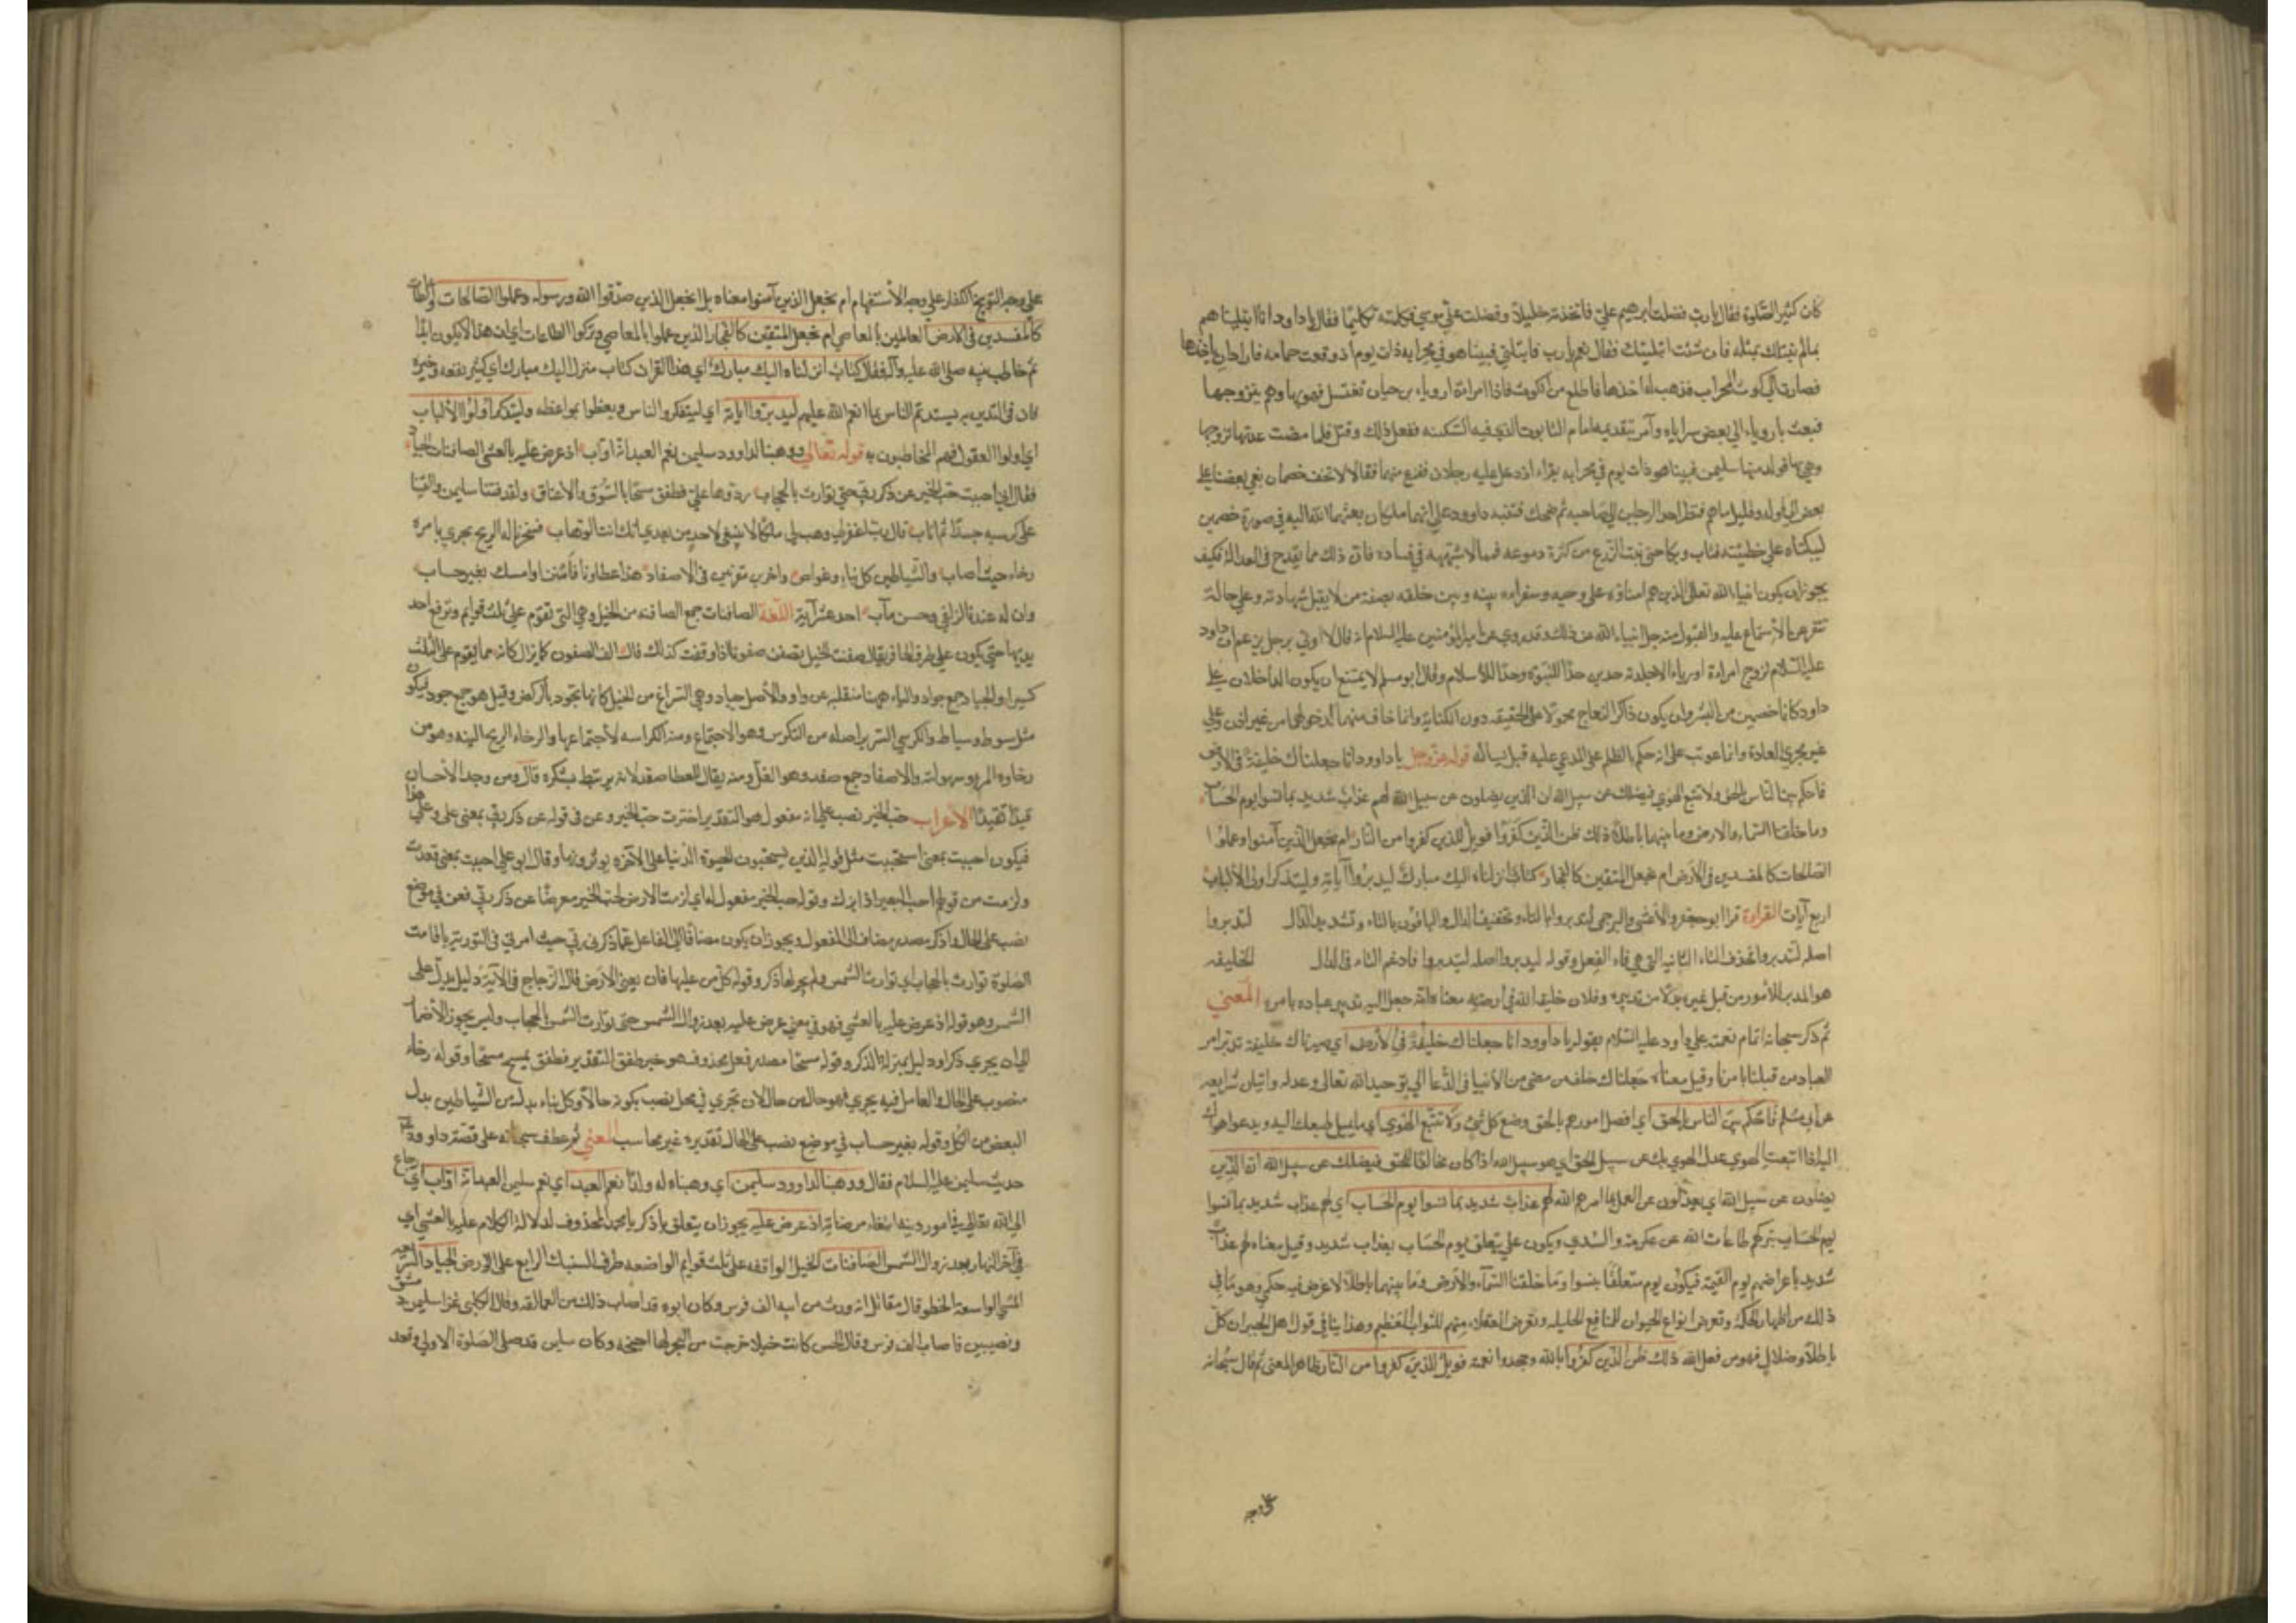 كان كثير الصلوة فقال يا رب فضلت ابرهيم علي فاتخذته خليلا وفضلت علي موسي فكلمته تكليما فقال يا داود انا ابتليناهم
بما لم نبتلك بمثله فان شئت ابتليتك فقال نعم يا رب فابتلني فبينا هو في محرابه ذات يوم اذ وقعت حمامه فاراد ان ياخذها
فصارت الي كوت المحراب فذهب لياخذها فاطلع من الكوت فاذا امراءة اورياء بن حيان تغتسل فهويها وهم بتزوجها
فبعث باورياء الي بعض سراياه وآمر بتقديمه امام التابوت الذي فيه السكينه ففعل ذلك وقتل فلما مضت عدتها تزوجها
وبني بها فولد منها سليمن فبينا هو ذات يوم في محرابه يقراء اذ دخل عليه رجلان ففزع منهما فقالا لا تخف خصمان بغي بعضنا علي
بعض الي قوله وقليل ما هم فنظر احد الرجلين الي صاحبه ثم ضحك فتنبه داوود علي انهما ملكان بعثهما الله اليه في صورة خصمين
ليبكتاه علي خطيئته فتاب وبكا حتي نبت الزرع من كثرة دموعه فمما لا شبهه في فساده فان ذلك مما يقدح في العداله فكيف
يجوز ان يكون انبياء الله تعالي الذين هم امناؤه علي وحيه وسفراءه بينه وبين خلقه بصفة من لا يقبل شهادته وعلي حالة
تنفر عن الاستماع اليه والقبول منه جل انبياء الله عن ذلك وقد روي عن امير المؤمنين عليه السلام انه قال لا اوتي برجل يزعم ان داود
عليه السلام تزوج امراءة اورياء الا جلدته حدين حدا للنبوة وحدا للاسلام وقال ابو مسلم لا يمتنع ان يكون الداخلان علي
داود كانا خصمين من البشر وان يكون ذاكر النعاج محمولا علي الحقيقه دون الكناية وانما خاف منهما لدخولهما من غير اذن وعلي
غير مجري العادة وانما عوتب علي انه حكم بالظلم علي المدعي عليه قبل ان يساله قوله عز وجل يا داوود انا جعلناك خليفة في الارض
فاحكم بين الناس بالحق ولا تتبع الهوي فيضلك عن سبيل الله ان الذين يضلون عن سبيل الله لهم عذاب شديد بما نسوا يوم الحساب
وما خلقنا السماء والارض وما بينهما باطلا ذلك ظن الذين كفروا فويل للذين كفروا من النار ام نجعل الذين آمنوا وعملوا
الصالحات كالمفسدين في الارض ام نجعل المتقين كالفجار كتاب انزلناه اليك مبارك ليدبروا آياته وليتذكر اولوا الالباب
اربع آيات القراءة قرا ابو جعفر والاعشي والبرجمي لتدبروا بالتاء وتخفيف الدال والباقون بالياء وتشديد الدال لتدبروا
اصله لتتدبروا فحذف التاء الثانيه التي هي فاء الفعل وقوله ليدبروا اصله ليتدبروا فادغم التاء في الدال الخليفه
هو المدبر للامور من قبل غيره بدلا من تدبيره وفلان خليفة الله في ارضه معناه انه جعل اليه تدبير عباده بامره المعني
ثم ذكر سبحانه اتمام نعمته علي داود عليه السلام بقوله يا داوود انا جعلناك خليفة في الارض اي صيرناك خليفة تدبر امر
العباد من قبلنا بامرنا وقيل معناه جعلناك خلف من مضي من الانبيا في الدعا الي توحيد الله تعالي وعدله وتبيان شرايعه
عن ابي مسلم فاحكم بين الناس بالحق اي افصل امورهم بالحق وضع كل شيء ولا تتبع الهوي اي ما يميل طبعك اليه ويدعوا هواك
اليه اذا اتبعت الهوي عدل الهوي بك عن سبيل الحق اي هو سبيل الله اذا كان مخالفا للحق فيضلك عن سبيل الله ان الذين
يضلون عن سبيل الله اي يعدلون عن العمل بما امرهم الله لهم عذاب شديد بما نسوا يوم الحساب اي لهم عذاب شديد بما نسوا
يوم الحساب بتركهم طاعات الله عن عكرمه والسدي ويكون علي يتعلق يوم الحساب بعذاب شديد وقيل معناه لهم عذاب
شديد باعراضهم يوم القيمة فيكون يوم متعلقا بنسوا وما خلقنا السماء والارض وما بينهما باطلا لا غرض فيه حكمي وهو ما في
ذلك من اظهار الحكمة وتعريض انواع الحيوان للمنافع الجليله وتعريض العقلاء منهم للثواب العظيم وهذا ينافي قول اهل الجبر ان كل
باطل وضلال فهو من فعل الله ذلك ظن الذين كفروا بالله وجحدوا نعمه فويل للذين كفروا من النار ظاهر المعني ثم قال سبحانه
علي وجه
علي وجه التوبيخ للكفار علي وجه الاستفهام ام نجعل الذين آمنوا معناه بل انجعل الذين صدقوا الله ورسوله وعملوا الصالحات والطاعات
كالمفسدين في الارض العاملين بالمعاصي ام نجعل المتقين كالفجار الذين عملوا بالمعاصي وتركوا الطاعات اي ان هذا لا يكون ابدا
ثم خاطب نبيه صلي الله عليه وآله فقال كتاب انزلناه اليك مبارك اي هذا القران كتاب منزل اليك مبارك اي كثير نفعه وخيره
فان في التدين به يستدعم الناس ما انعم الله عليهم ليدبروا آياته اي ليتفكر الناس ويتعظوا بمواعظه وليتذكر اولوا الالباب
اي اولوا العقول فهم المخاطبون به قوله تعالي ووهبنا لداوود سليمن نعم العبد انه اواب اذ عرض عليه بالعشي الصافنات الجياد
فقال اني احببت حب الخير عن ذكر ربي حتي توارت بالحجاب ردوها علي فطفق مسحا بالسوق والاعناق ولقد فتنا سليمن والقينا
علي كرسيه جسدا ثم اناب قال رب اغفر لي وهب لي ملكا لا ينبغي لاحد من بعدي انك انت الوهاب فسخرنا له الريح تجري بامره
رخاء حيث اصاب والشياطين كل بناء وغواص واخرين مقرنين في الاصفاد هذا عطاؤنا فامنن او امسك بغير حساب
وان له عندنا لزلفي وحسن مآب احد عشر آية اللغة الصافنات جمع الصافنه من الخيل وهي التي تقوم علي ثلث قوايم وترفع احد
يديها حتي يكون علي طرف الحافر يقال صفنت الخيل تصفن صفونا اذا وقفت كذلك قال الف الصفون كما يزال كانه مما يقوم علي الثلث
كسيرا والجياد جمع جواد والياء ههنا منقلبه عن واو والاصل جياد وهي السراع من الخيل كانها تجود بالركض وقيل هو جمع جود فيكون
مثل سوط وسياط والكرسي السرير اصله من التكرس وهو الاجتماع ومنه الكراسه لاجتماعها والرخاء الريح اللينه وهو من
رخاوه المرور سهولته والاصفاد جمع صفد وهو الغل ومنه يقال للعطا صفد لانه يرتبط بشكره قال ومن وجد الاحسان
قيدا تقيدا الاعراب حب الخير نصب علي انه مفعول هو التقدير اخترت حب الخير وعن في قوله عن ذكر ربي بمعني علي وعلي هذا
فيكون احببت بمعني استحببت مثل قوله الذين يستحبون الحيوة الدنيا علي الاخره يوثرونها وقال ابو علي احببت بمعني قعدت
ولزمت من قولهم احب البعير اذا برك وقوله حب الخير مفعول له اي لزمت الارض لحب الخير معرضا عن ذكر ربي فعن في موضع
نصب علي الحال وذكر مصدر مضاف الي المفعول ويجوز ان يكون مضافا الي الفاعل عما ذكرني ربي حيث امرني في التوريه باقامت
الصلوة توارت بالحجاب اي توارت الشمس ولم يجر لها ذكر وقوله كل من عليها فان يعني الارض قال الزجاج في الآية دليل يدل علي
الشمس وهو قوله اذ عرض عليه بالعشي فهو في معني عرض عليه بعد زوال الشمس حتي توارت الشمس بالحجاب وليس يجوز الاضمار
الا ان يجري ذكر او دليل بمنزلة الذكر وقوله مسحا مصدر فعل محذوف هو خبر طفق التقدير فطفق يمسح مسحا وقوله رخاء
منصوب علي الحال والعامل فيه يجري فهو حال من حال لان تجري في محل نصب بكونه حالا وكل بناء بدل من الشياطين بدل
البعض من الكل وقوله بغير حساب في موضع نصب علي الحال تقديره غير محاسب المعني ثم عطف سبحانه علي قصة داوود
حديث سليمن عليه السلام فقال ووهبنا لداوود سليمن اي وهبناه له ولدا نعم العبد اي نعم سليمن العبد انه اواب اي رجاع
الي الله تعالي في امور دينه ابتغاء مرضاته اذ عرض عليه يجوز ان يتعلق باذكر يا محمد المحذوف لدلالة الكلام عليه بالعشي اي
في آخر النهار بعد زوال الشمس الصافنات الخيل الواقفه علي ثلث قوايم الواضعه طرف السنبك الرابع علي الارض الجياد السريعه
المشي الواسعة الخطو قال مقاتل انه ورث من ابيه الف فرس وكان ابوه قد اصاب ذلك من العمالقه وقال الكلبي غزا سليمن دمشق
ونصيبين فاصاب الف فرس وقال الحسن كانت خيلا خرجت من البحر لها اجنحه وكان سليمن قد صلي الصلوة الاولي وقعد